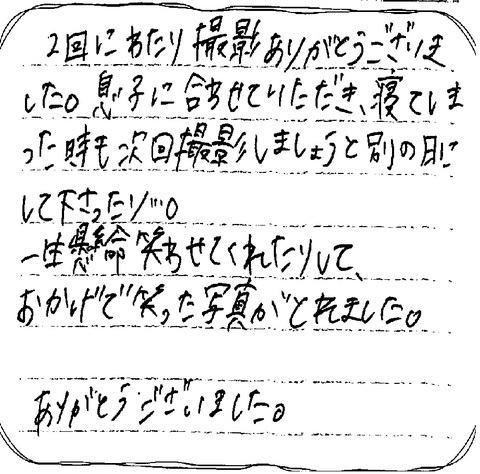 2回にわたり撮影ありがとうございま
した。息子に合わせていただき、寝てしま
った時も次回撮影しましょうと別の日に
して下さったり…。
一生懸命笑わせてくれたりして、
おかげで笑った写真がとれました。
ありがとうございました。